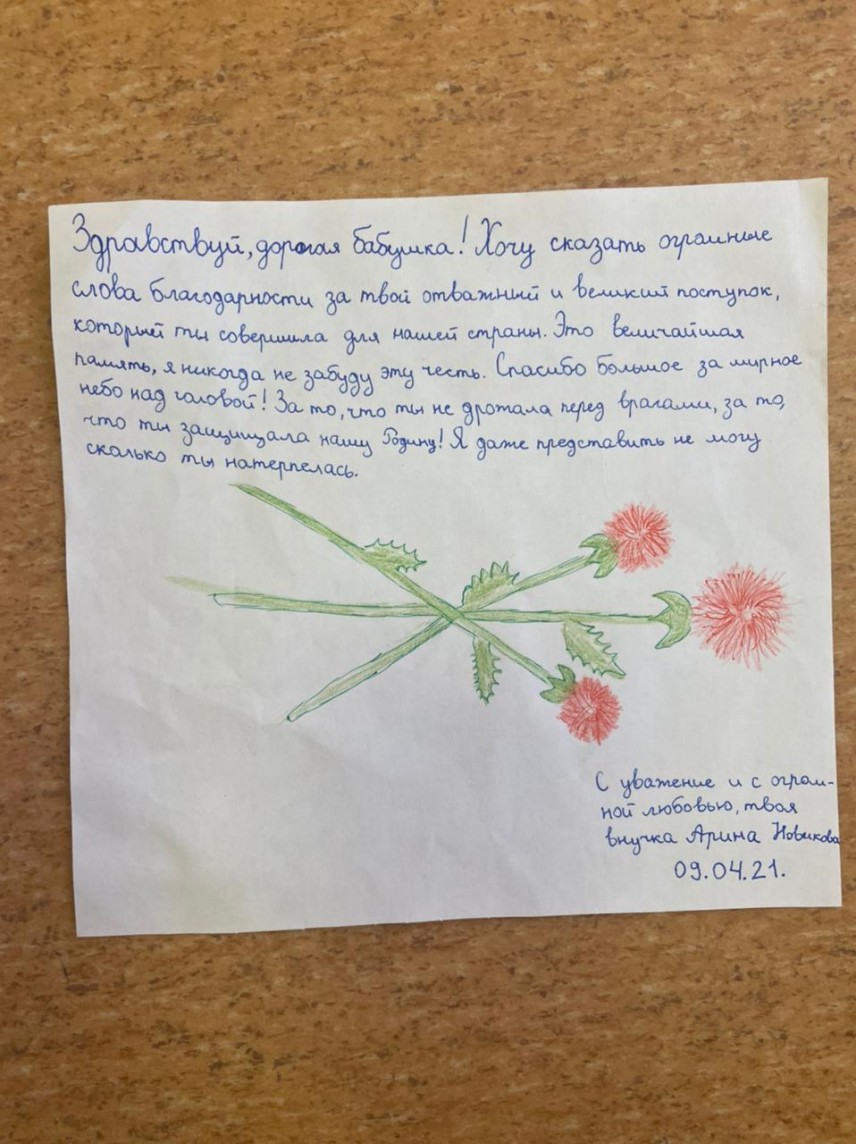 Здравствуй, дорогая бабушка! Хочу сказать огромные
слова благодарности за твой отважный и великий поступок,
который ты совершила для нашей страны. Это величайшая
память, я никогда не забуду эту честь. Спасибо большое за мирное
небо над головой! За то, что ты не дрожала перед врагами, за то,
что ты защищала нашу Родину! Я даже представить не могу
сколько ты натерпелась.
С уважение и с огром-
ной любовью, твоя
внучка Арина Новикова
09.04.21.